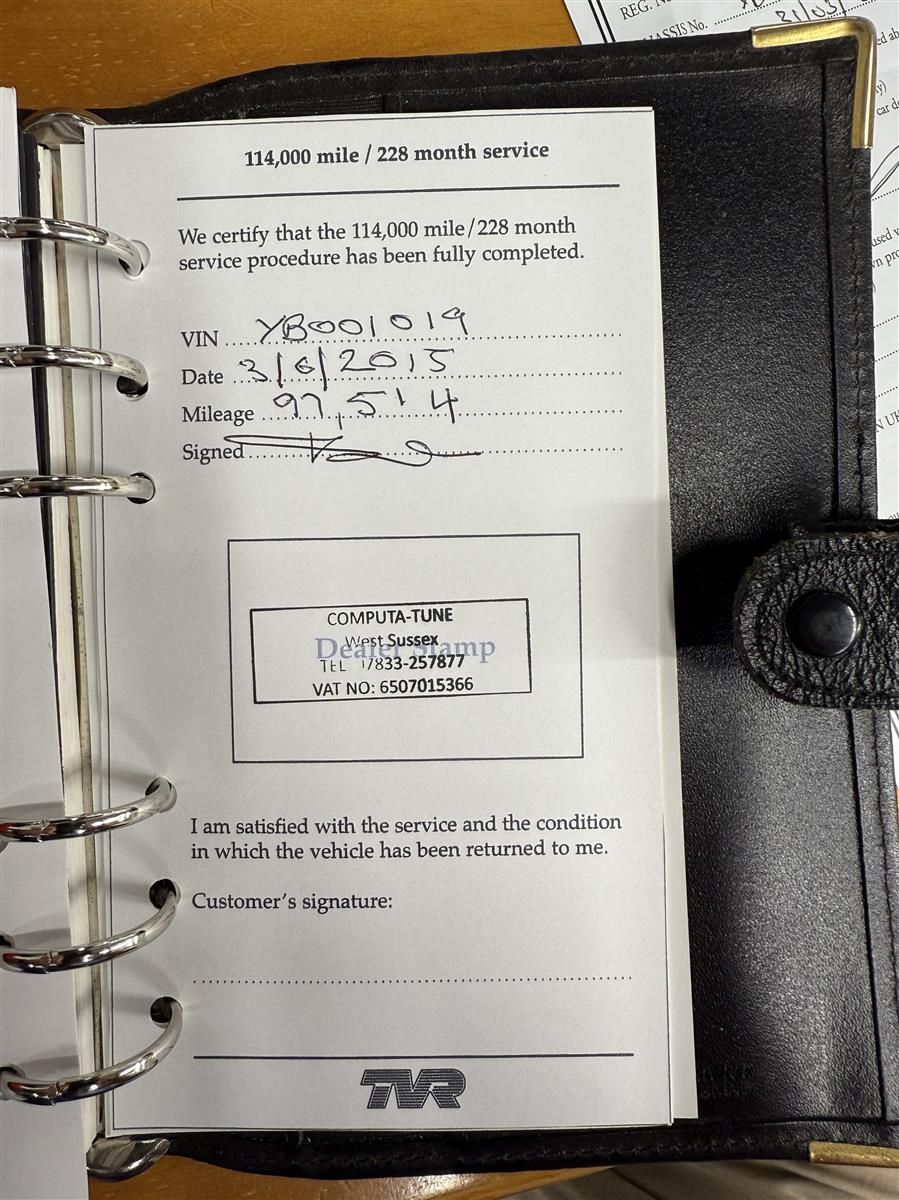 REG. N
CHASSIS No.
21/03/
ed ab
car d
used v
114,000 mile / 228 month service
We certify that the 114,000 mile/228 month
service procedure has been fully completed.
VIN YB001019
Date 3/6/2015
Mileage 97,514
Signed
COMPUTA-TUNE
West Sussex
Dealer Stamp
TEL 17833-257877
VAT NO: 6507015366
I am satisfied with the service and the condition
in which the vehicle has been returned to me.
Customer's signature:
TVR